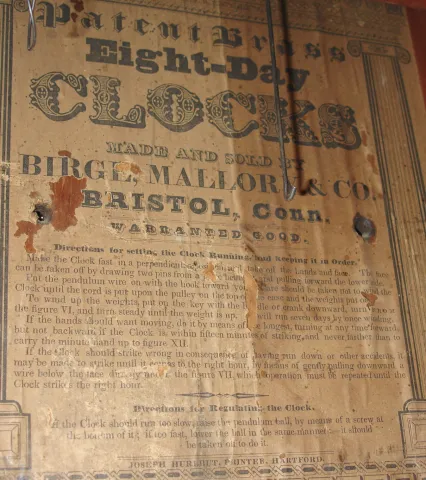 Patent Brass
Eight-Day
CLOCKS
MADE AND SOLD BY
BIRGE, MALLORY & CO.
BRISTOL, Conn.
WARRANTED GOOD.
Directions for setting the Clock Running and keeping it in Order.
Make the Clock fast in a perpendicular take off the hands and face. The face
can be taken off by drawing two pins
Put the pendulum wire on with the hook toward
Clock until the cord is put upon the pulley on the top case and the weights put on
To wind up the weights, put on the key with the or crank downward, turn
the figure VI, and turn steady until the weight is up. will run days by once winding
If the hands should want moving, do it by means of the longest, turning at any time forward
but not backward if the Clock is within fifteen minutes of striking, and never farther than to
carry the minute hand up to figure XII.
If the Clock should strike wrong in consequence of having run down or other accidents, it
may be made to strike until it comes to the right hour, by means of gently pulling downward a
wire below the face directly under the figure VII, which operation must be repeated until the
Clock strikes the right hour.
Directions for Regulating the Clock.
If the Clock should run too slow, raise the pendulum ball, by means of a screw at
the bottom of it; if too fast, lower the ball in the same manner it should
be taken off to do it.
JOSEPH HURLBUT, PRINTER, HARTFORD.